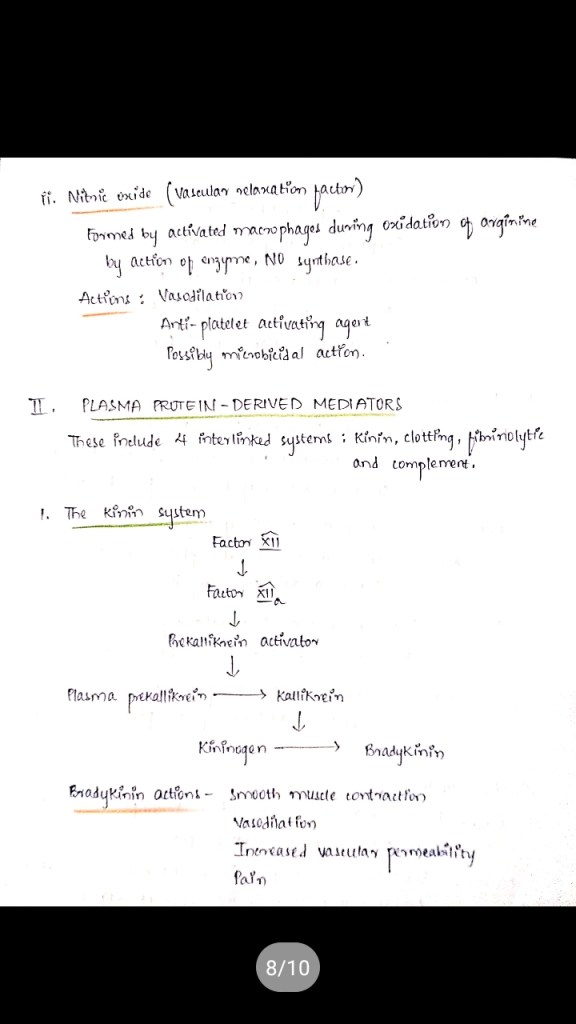 ii. Nitric oxide (Vascular relaxation factor)
Formed by activated macrophages during oxidation of arginine
by action of enzyme, NO synthase.
Actions : Vasodilation
Anti-platelet activating agent
Possibly microbicidal action.
II. PLASMA PROTEIN-DERIVED MEDIATORS
These include 4 interlinked systems : Kinin, clotting, fibrinolytic
and complement.
1. The Kinin system
Factor XII
↓
Factor XIIa
↓
Prekallikrein activator
↓
Plasma prekallikrein → Kallikrein
↓
Kininogen → Bradykinin
Bradykinin actions - Smooth muscle contraction
Vasodilation
Increased vascular permeability
Pain
8/10